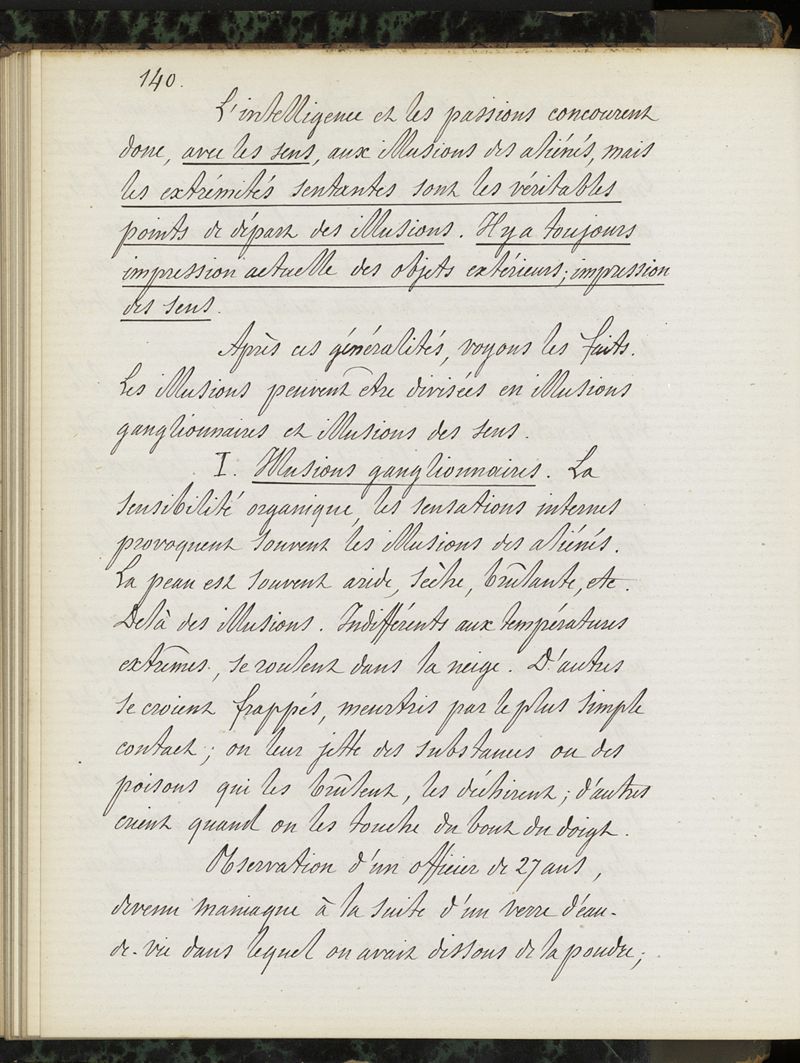 140.
L'intelligence et les passions concourent
donc, avec les sens, aux illusions des aliénés, mais
les extrémités sentantes sont les véritables
points de départ des illusions. Il y a toujours
impression actuelle des objets extérieurs; impression
des sens.
Après ces généralités, voyons les faits.
Les illusions peuvent être divisées en illusions
ganglionnaires et illusions des sens.
I. Illusions ganglionnaires. La
sensibilité organique, les sensations internes
provoquent souvent les illusions des aliénés.
La peau est souvent aride, sèche, brûlante, etc.
Delà des illusions. Indifférents aux températures
extrêmes, se roulent dans la neige. D'autres
se croient frappés, meurtris par le plus simple
contact; on leur jette des substances ou des
poisons qui les brûlent, les déchirent; d'autres
crient quand on les touche du bout du doigt.
Observation d'un officier de 27 ans,
devenu maniaque à la suite d'un verre d'eau-
de-vie dans lequel on avait dissous de la poudre;